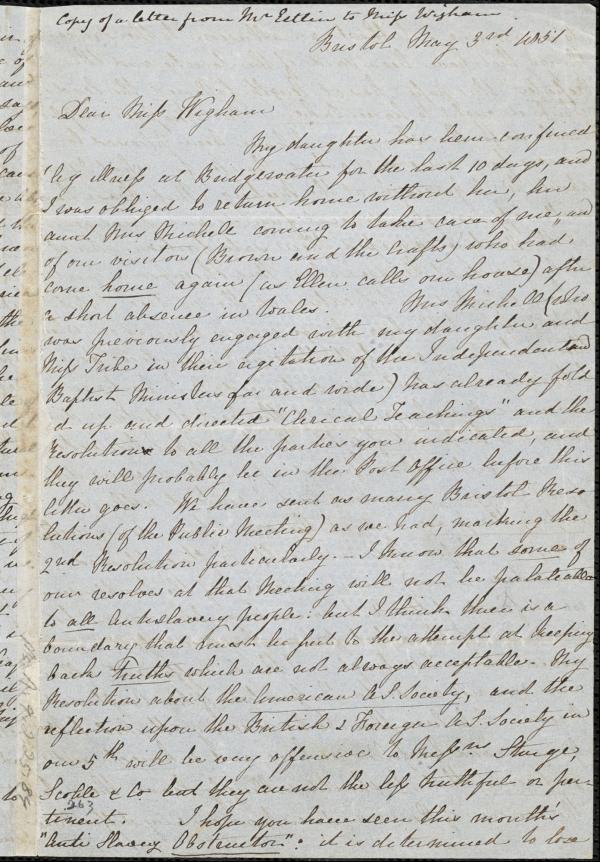 Copy of a letter from Mr Estlin to Miss Wigham
Bristol May 3rd 1851
Dear Miss Wigham
My daughter has been confined
by illness at Bridgewater for the last 10 days, and
I was obliged to return home without her, her
aunt Miss Michell coming to take care of me, and
of our visitors (Brown and the Crafts) who had
come home again (as Ellen calls our house) after
a short absence in Wales. Miss Michell (who
was previously engaged with my daughter and
Miss Tribe in their agitation of the Independent and
Baptist Ministers far and wide) has already fold
ed up and directed "Clerical Teachings" and the
Resolution to all the parties you indicated, and
they will probably be in the Post Office before this
letter goes. We have sent as many Bristol Reso
lutions (of the Public Meeting) as we had, marking the
2nd Resolution particularly. - I know that some of
our resolves at that Meeting will not be palateable
to all Antislavery people: but I think there is a
boundary that must be put to the attempt at keeping
back Truths which are not always acceptable. My
Resolution about the American A.S. Society, and the
reflection upon the British & Foreign A.S. Society in
our 5th will be very offensive to Messrs Sturge,
Scoble & Co but they are not the less truthful or per-
tinent. I hope you have seen this month's
263
"Anti Slavery Obstructor": it is determined to lose